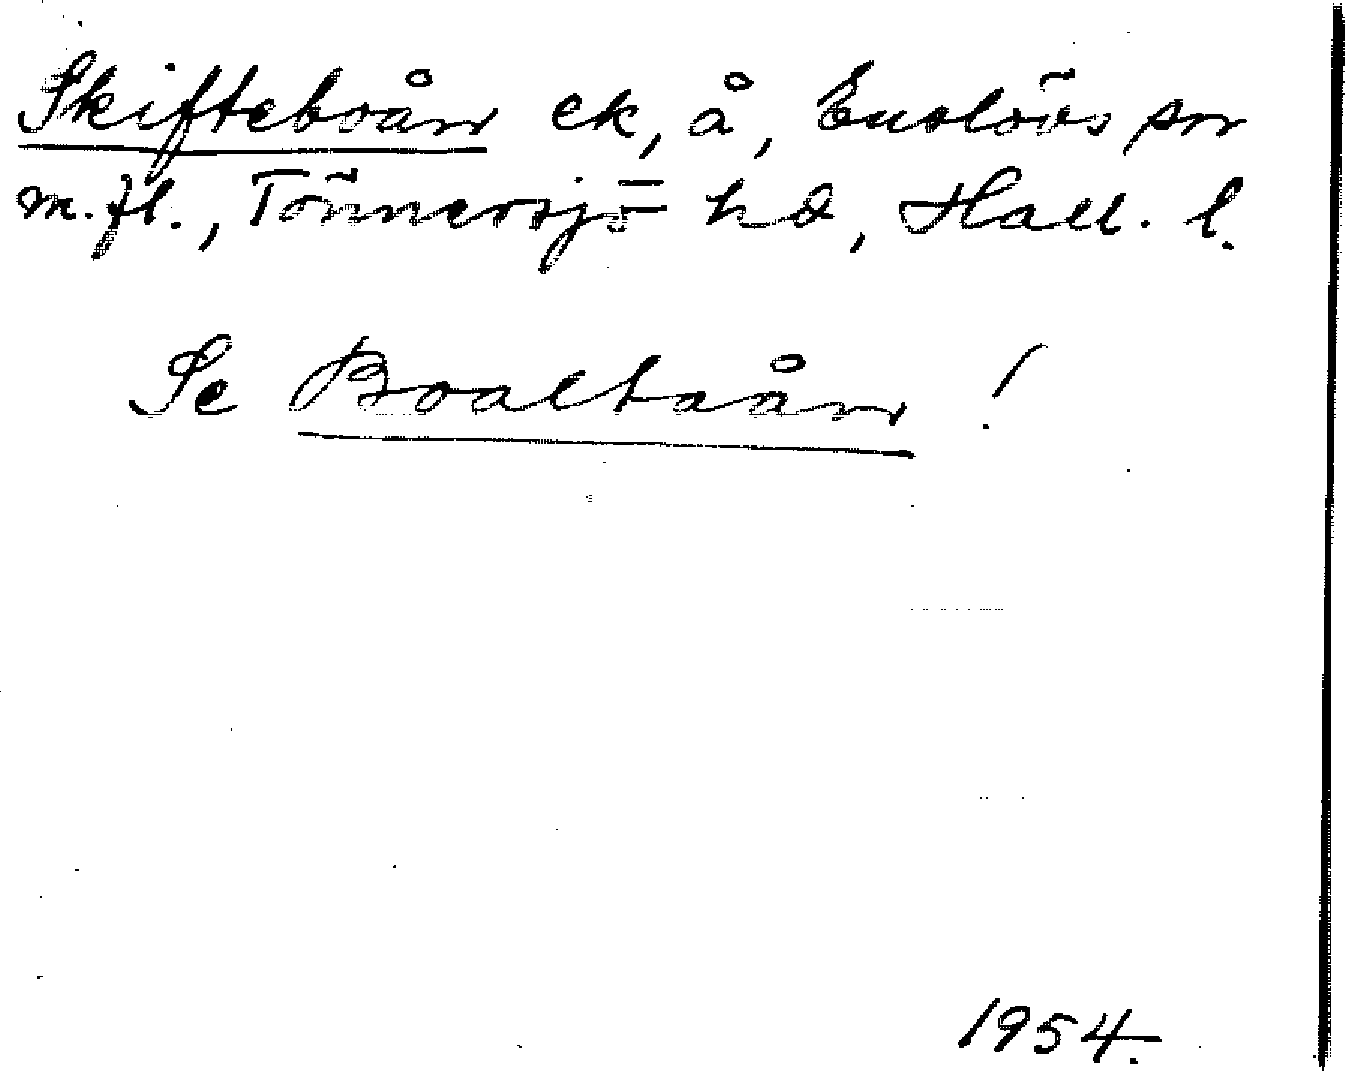 Skifteboån ek, å, Enslövs sn
m.fl., Tönnersjö hd, Hall. l.
Se Boaltaån !
1954.